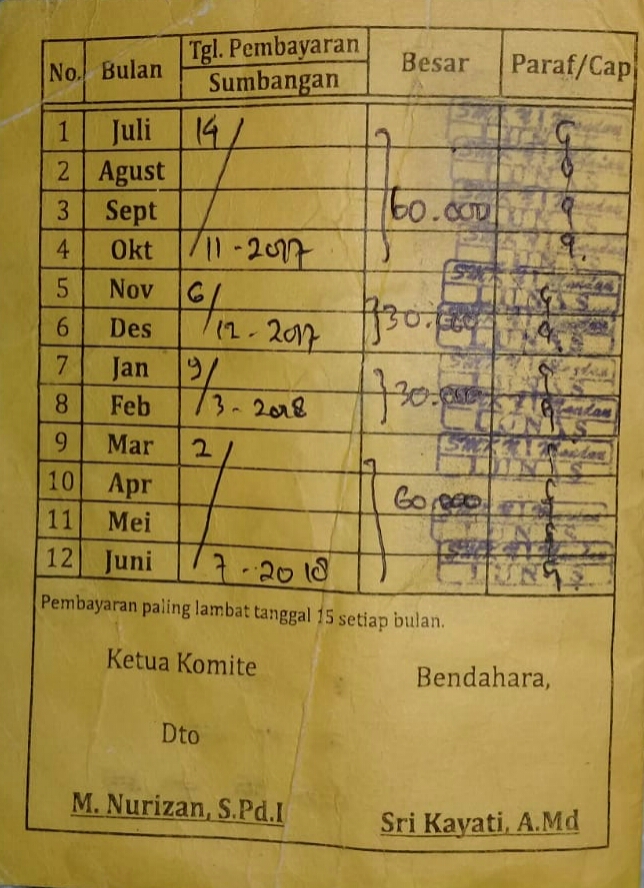 No. Bulan Tgl. Pembayaran Sumbangan Besar Paraf/Cap
1 Juli 14/
2 Agust
3 Sept 60.000
4 Okt /11-2017
5 Nov 6/
6 Des /12-2017 30.000
7 Jan 9/
8 Feb /3-2018 30.000
9 Mar 2/
10 Apr 60.000
11 Mei
12 Juni 7-2018
LUNAS
Pembayaran paling lambat tanggal 15 setiap bulan.
Ketua Komite Bendahara,
Dto
M. Nurizan, S.Pd.I Sri Kayati, A.Md